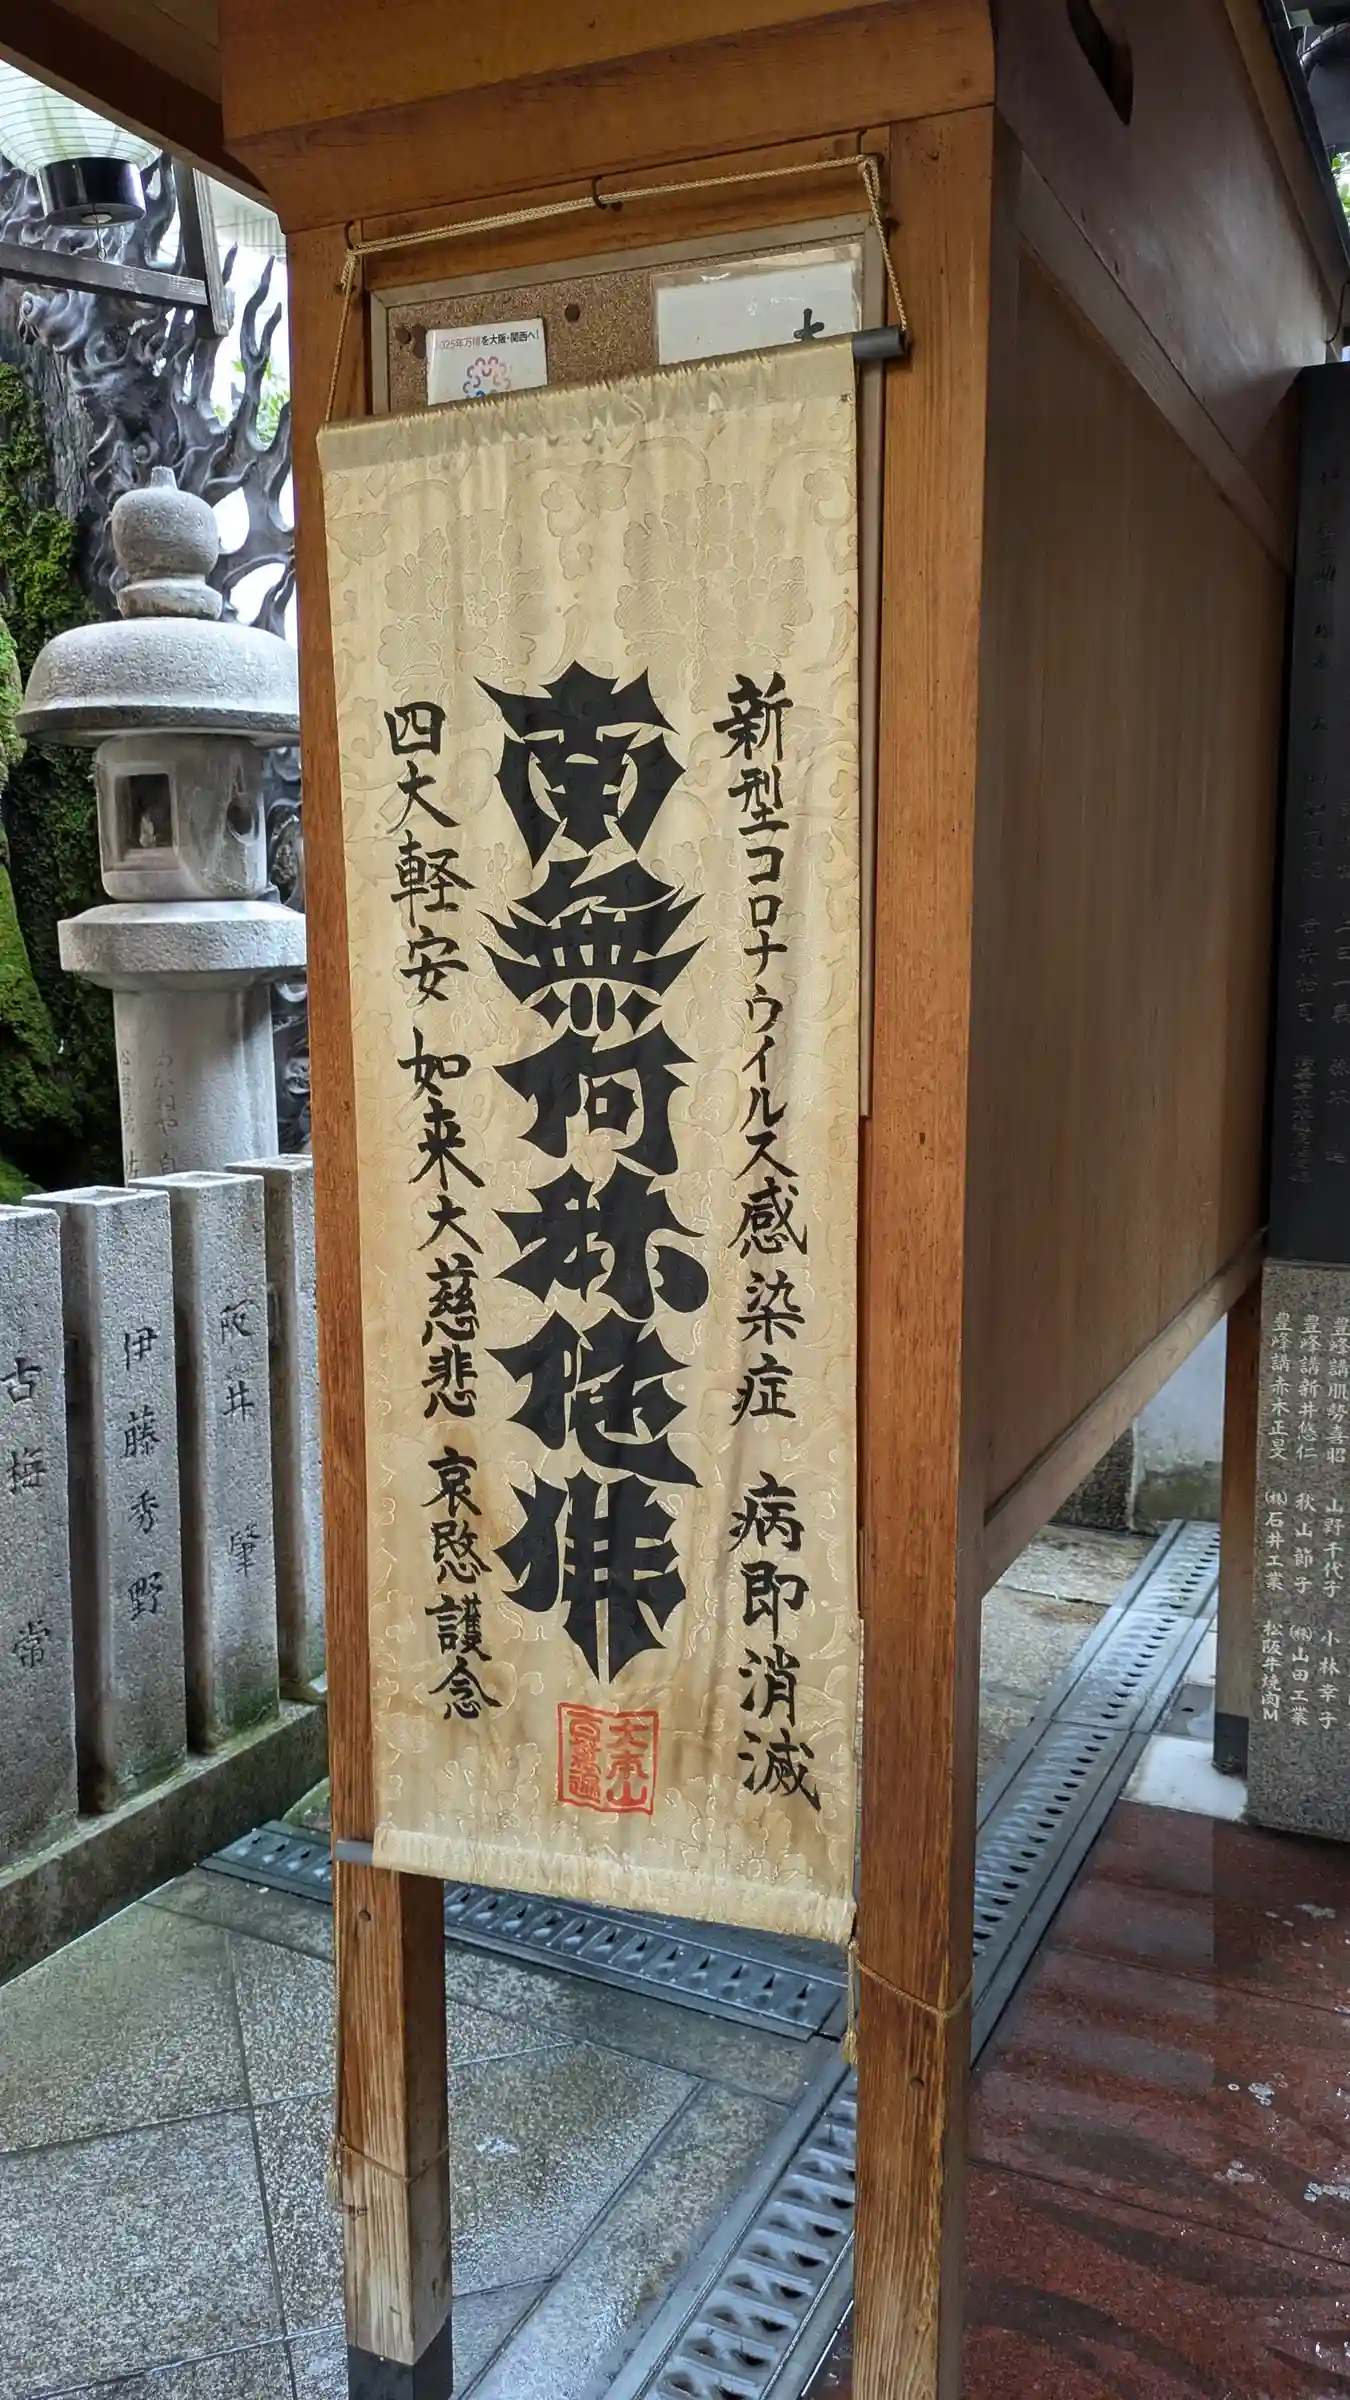 2025年万博を大阪・関西へ!
大
新型コロナウイルス感染症 病即消滅
南無阿弥陀佛
四大軽安 如来大慈悲 哀愍護念
大本山
百萬遍
阪井肇
伊藤秀野
古梅常
豊峰講肌勢喜昭 山野千代子 小林幸子
豊峰講新井悠仁 秋山節子 ㈱山田工業
豊峰講赤木正旻 ㈱石井工業 松阪牛焼肉M